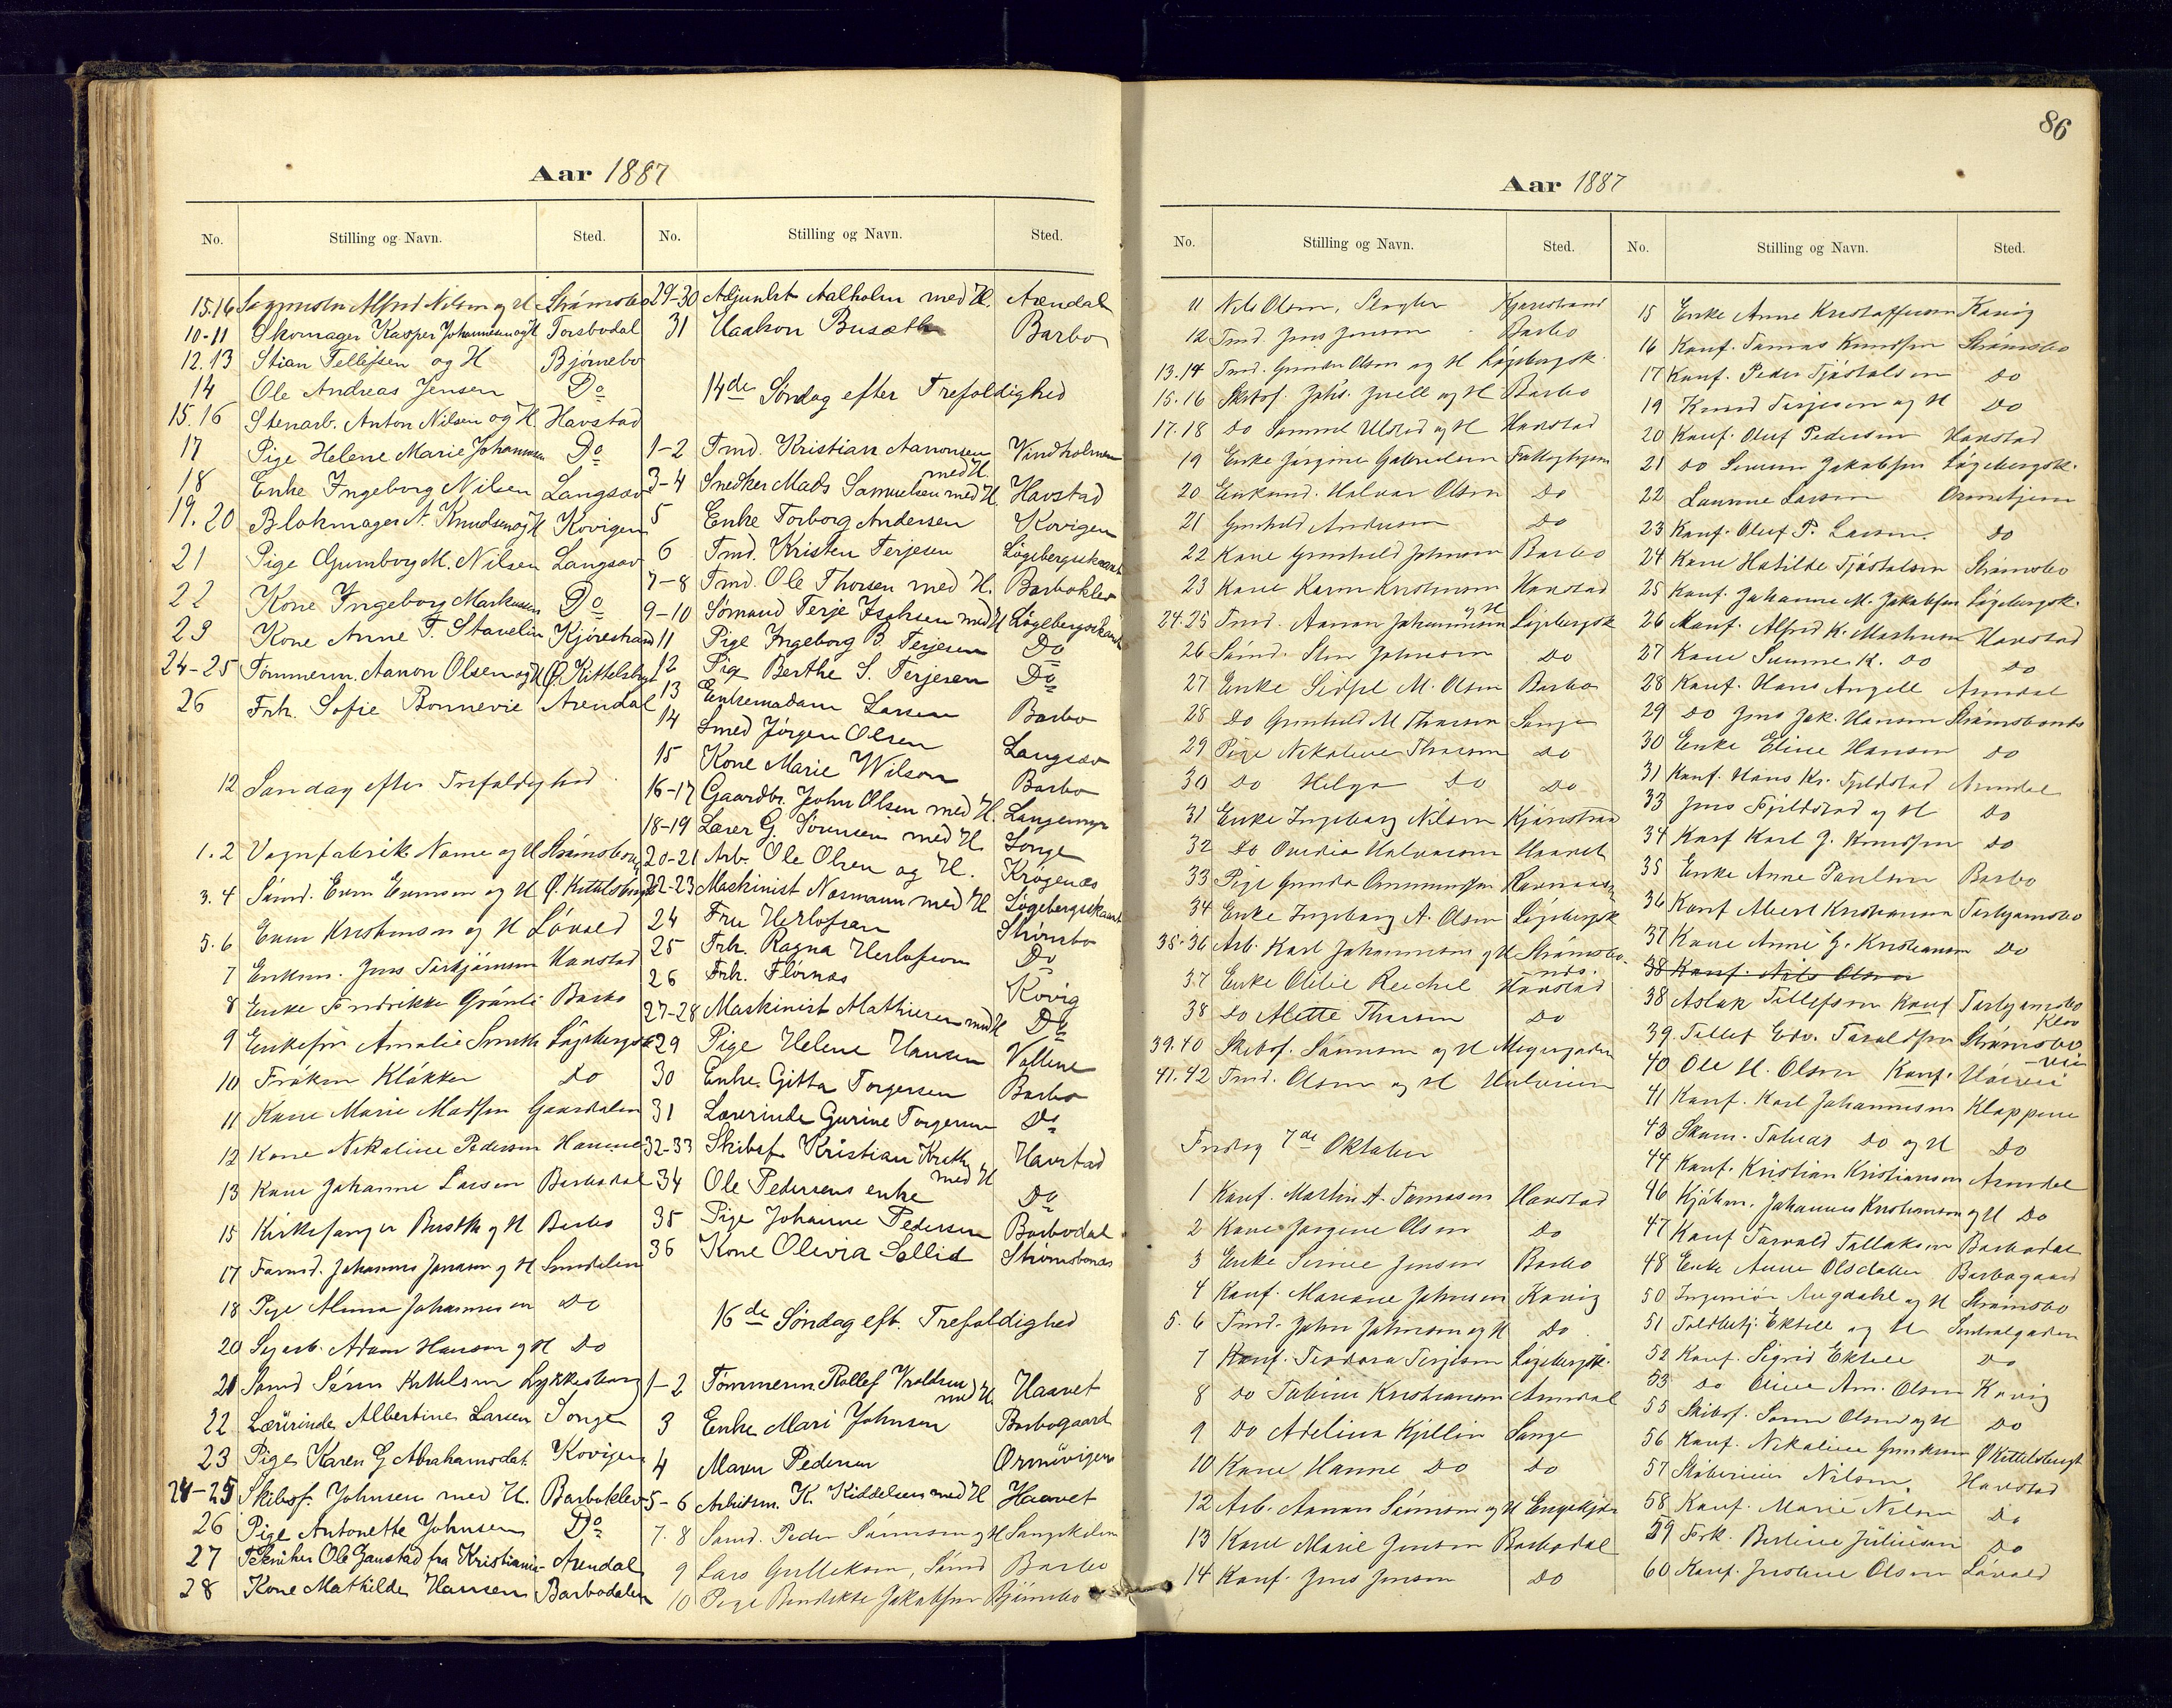 Aar 1887
No. Stilling og Navn. Sted.
15.16 Alfred Nilsen og H Strømsbo
10-11 Skomager Kasper Johannesen og H Torsbudal
12.13 Stian Tellefsen og H Bjørnebo
14 Ole Andreas Jensen Do
15.16 Stenarb. Anton Nilsen og H. Havstad
17 Pige Helene Marie Johannesen Do
18 Enke Ingeborg Nilsen Langsæv
19.20 Blokmager A. Knudsen og H Kovigen
21 Pige Gumborg M. Nilsen Langsæv
22 Kone Ingeborg Markussen Do
23 Kone Anne T. Stavelin Kjørestrand
24-25 Tømmerm. Aanon Olsen og H Ø. Kittelsbugt
26 Frk. Sofie Bonnevie Arendal
12 Søndag efter Trefoldighed
1.2 Vognfabrik. Name og H Strømsbo
3.4 Sømd. Even Evensen og H Ø. Kittelsbugt
5.6 Even Kristensen og H Løvold
7 Enkem. Jens Terkjønsen Havstad
8 Enke Fredrikke Grønli Barbo
9 Enkefru Amalie Smith Løgebergsk
10 Frøken Kløkker Do
11 Kone Marie Madsen Gaardalen
12 Kone Nikoline Pedersen
13 Kone Johanne Larsen Barbodal
15 Kirkesanger Buseth og H Barbo
17 Formd. Johannes Jonasen og H Sendalen
18 Pige Alma Johannesen Do
20 Sagarb. Adam Hansen og H Do
21 Sømd Søren Kittelsen Lykkesborg
22 Lærerinde Albertine Larsen Songe
23 Pige Karen G Abrahamsdat. Kovigen
24-25 Skibsf. Johnsen med H. Barbokleven
26 Pige Antonette Johnsen Do
27 Tekniker Ole Janstad fra Kristiania Arendal
28 Kone Mathilde Hansen Barbodalen
No. Stilling og Navn. Sted.
29-30 Adjunkt Aalholm med H. Arendal
31 Haakon Buseth Barbo
14de Søndag efter Trefoldighed
1-2 Tmd. Kristian Aanonsen med H Vindholmen
3-4 Snedker Mads Samuelsen med H. Havstad
5 Enke Torborg Andersen Kovigen
6 Tmd. Kristen Terjesen Løgebergsskaaret
7-8 Tmd. Ole Thorsen med H. Barboklev
9-10 Sømand Terje Isaksen med H Løgebergsskaaret
11 Pige Ingeborg B. Terjesen Do
12 Pige Berthe S. Terjesen Do
13 Enkemadam Larsen Barbo
14 Smed Jørgen Olsen Langsæv
15 Kone Marie Wilson Barbo
16-17 Gaardbr. John Olsen med H. Langemyr
18-19 Lærer G. Sørensen med H. Songe
20-21 Arb. Ole Olsen og H. Krøgenæs
22-23 Maskinist Nosmann med H Løgebergsskaaret
24 Fru Herlofsen Strømbo
25 Frk. Ragna Herlofson Do
26 Frk. Flørnæs Kovig
27-28 Maskinist Mathiesen med H Do
29 Pige Helene Hansen Vollene
30 Enke Gitta Torgersen Barbo
31 Lærerinde Gurine Torgersen Do
32-33 Skibsf Kristian Knth med H Havstad
34 Ole Pedersens enke Do
35 Pige Johanne Pedersen Barbodal
36 Kone Olivia Sollid Strømsbonæs
16de Søndag eft. Trefoldighed
1-2 Tømmerm Rollef Vroldsen med H Haavet
3 Enke Mari Johnsen Barbogaard
4 Maren Pedersen Ormevigen
5-6 Arbeidsm. K. Kiddelsen med H Haavet
7.8 Sømd. Peder Sørensen og H Songekilen
9 Lars Gulleksen, Sømd Barbo
10 Pige Bendikte Jakobsen Bjørnebo
86
Aar 1887
No. Stilling og Navn. Sted.
11 Nils Olsen, Slagter Kjørestrand
12 Tmd. Jens Jensen Barbo
13.14 Tmd. Gunder Olsen og H Løgebergsk
15.16 Skibsf. Johs. Juell og H Barbo
17.18 Do Samuel Ulsted og H Havstad
19 Enke Jørgine Gabrielsen
20 Enkemd. Halvor Olsen Do
21 Gunhild Andersen Do
22 Kone Gunhild Johnsen Barbo
23 Kone Karen Kristensen Havstad
24.25 Tmd. Aanon Johannesen og H Løgebergsk
26 Sømd. Sten Johnsen Do
27 Enke Sidsel M. Olsen Barbo
28 Do Gunhild M Thorsen Songe
29 Pige Nikoline Thorsen Do
30 Do Helga Do Do
31 Enke Ingeborg Nilsen Kjørestrand
32 Do Ovidia Halvorsen Haavet
33 Pige Gunda Gummundsen
34 Enke Ingeborg A. Olsen Løgebergsk
35.36 Arb. Karl Johannesen og H Strømsbonæs
37 Enke Otilie Reichel Havstad
38 Do Alette Thorsen Do
39.40 Skibsf. Sørensen og H Meyergaden
41.42 Tmd. Olsen og H
Fredag 7de Oktober
1 Konf. Martin A. Tomasen Havstad
2 Kone Jørgine Olsen Do
3 Enke Sirine Jensen Barbo
4 Konf. Mariane Johnsen Kovig
5.6 Tmd. John Johnsen og H Do
7 Konf. Teodora Terjesen Løgebergsk.
8 Do Tobine Kristiansen Arendal
9 Do Adelina Kjellin Songe
10 Kone Hanne Do Do
12 Arb. Aanon Sørensen og H Engekjær
13 Kone Marie Jensen Barbodal
14 Konf. Jens Jensen Do
No. Stilling og Navn. Sted.
15 Enke Anne Kristoffersen Kovig
16 Konf. Tomas Knudsen Strømsbo
17 Konf. Peder Tjøstolsen Do
19 Knud Terjesen og H Do
20 Konf. Oluf Pedersen Havstad
21 Do Severin Jakobsen Løgebergsk.
22 Laurine Larsen Ormetjern
23 Konf. Oluf P. Larsen. Do
24 Kone Matilde Tjøstolsen Strømsbo
25 Konf. Johanne M. Jakobsen Løgebergsk.
26 Konf. Alfred K. Markussen Havstad
27 Kone Sunneve K. Do Do
28 Konf. Hans Angell Arendal
29 Do Jens Jak. Hansen Strømsbonæs
30 Enke Eline Hansen Do
31 Konf. Hans Kr. Fjeldstad Arendal
33 Jens Fjeldstad og H Do
34 Konf Karl J. Knudsen Do
35 Enke Anne Paulsen Barbo
36 Konf Albert Kristiansen Torbjørnsbo
37 Kone Anne G. Kristiansen Do
38 Konf. Nils Olsen
38 Aslak Tellefsen Konf Torbjørnsbo
39 Tellef Edv. Taraldsen Strømsbo
40 Ole H. Olsen Konf.
41 Konf. Karl Johannesen Kloppene
43 Skom. Tobias Do og H Do
44 Konf. Kristian Kristiansen Arendal
46 Kjøbm. Johannes Kristiansen og H Do
47 Konf Torvald Tallaksen Barbodal
48 Enke Anne Olsdatter Barbogaard
50 Ingeniør Augdahl og H Strømsbo
51 Toldbetj. Ektell og H Sentralgaden
52 Konf. Sigrid Ektell Do
53 Do Oline Am. Olsen Kovig
55 Skibsf. Sørn Olsen og H Do
56 Konf. Nikoline Gundersen Ø Kittelsbugt
57 Nilsen Havstad
58 Konf. Marie Nilsen Do
59 Frk. Berline Juliusen Do
60 Konf. Justine Olsen Løvold